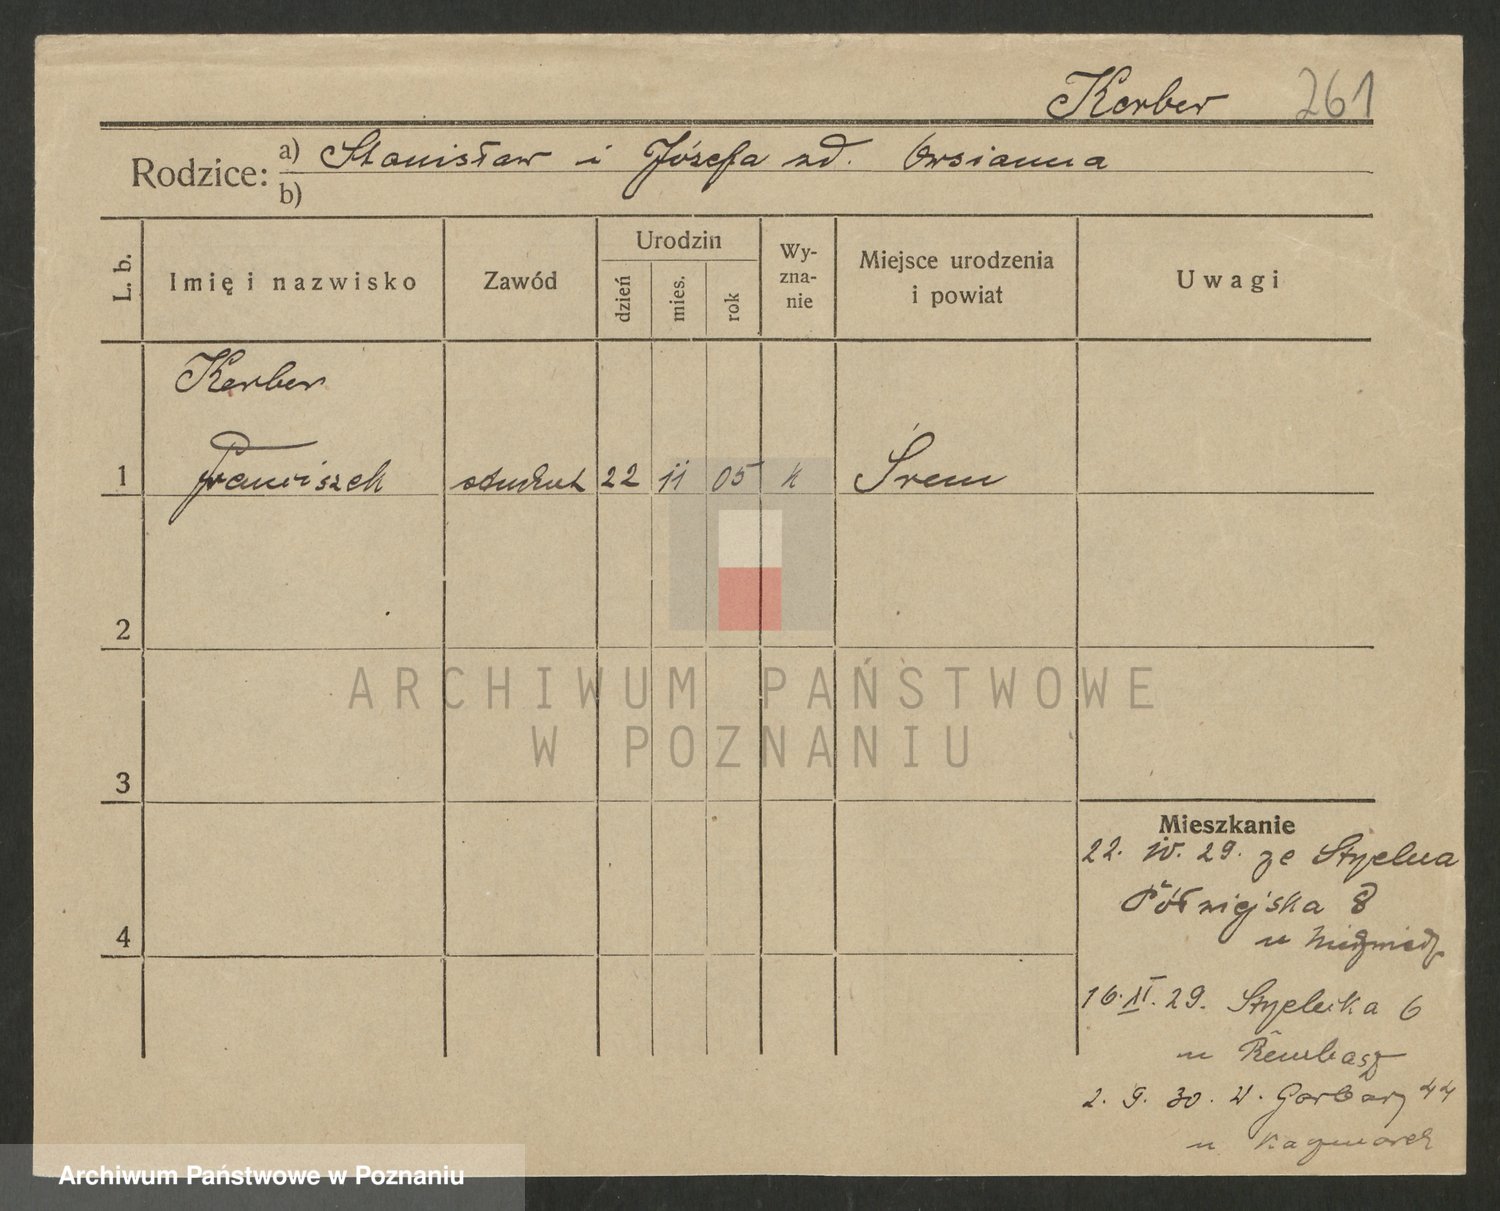 Kerber 261
Rodzice: a) Stanisław i Józefa zd. Owsianna
b)
L. b. Imię i nazwisko Zawód Urodzin dzień mies. rok Wy-zna-nie Miejsce urodzenia i powiat Uwagi
Kerber
1 Franciszek student 22 11 05 k Śrem
2
3
4
ARCHIWUM PAŃSTWOWE
W POZNANIU
Mieszkanie
22. IV. 29. ze
Półwiejska 8
u
16. XI. 29. Strzelecka 6
u
2. 9. 30. W. Garbary 44
u Kaczmarek
Archiwum Państwowe w Poznaniu